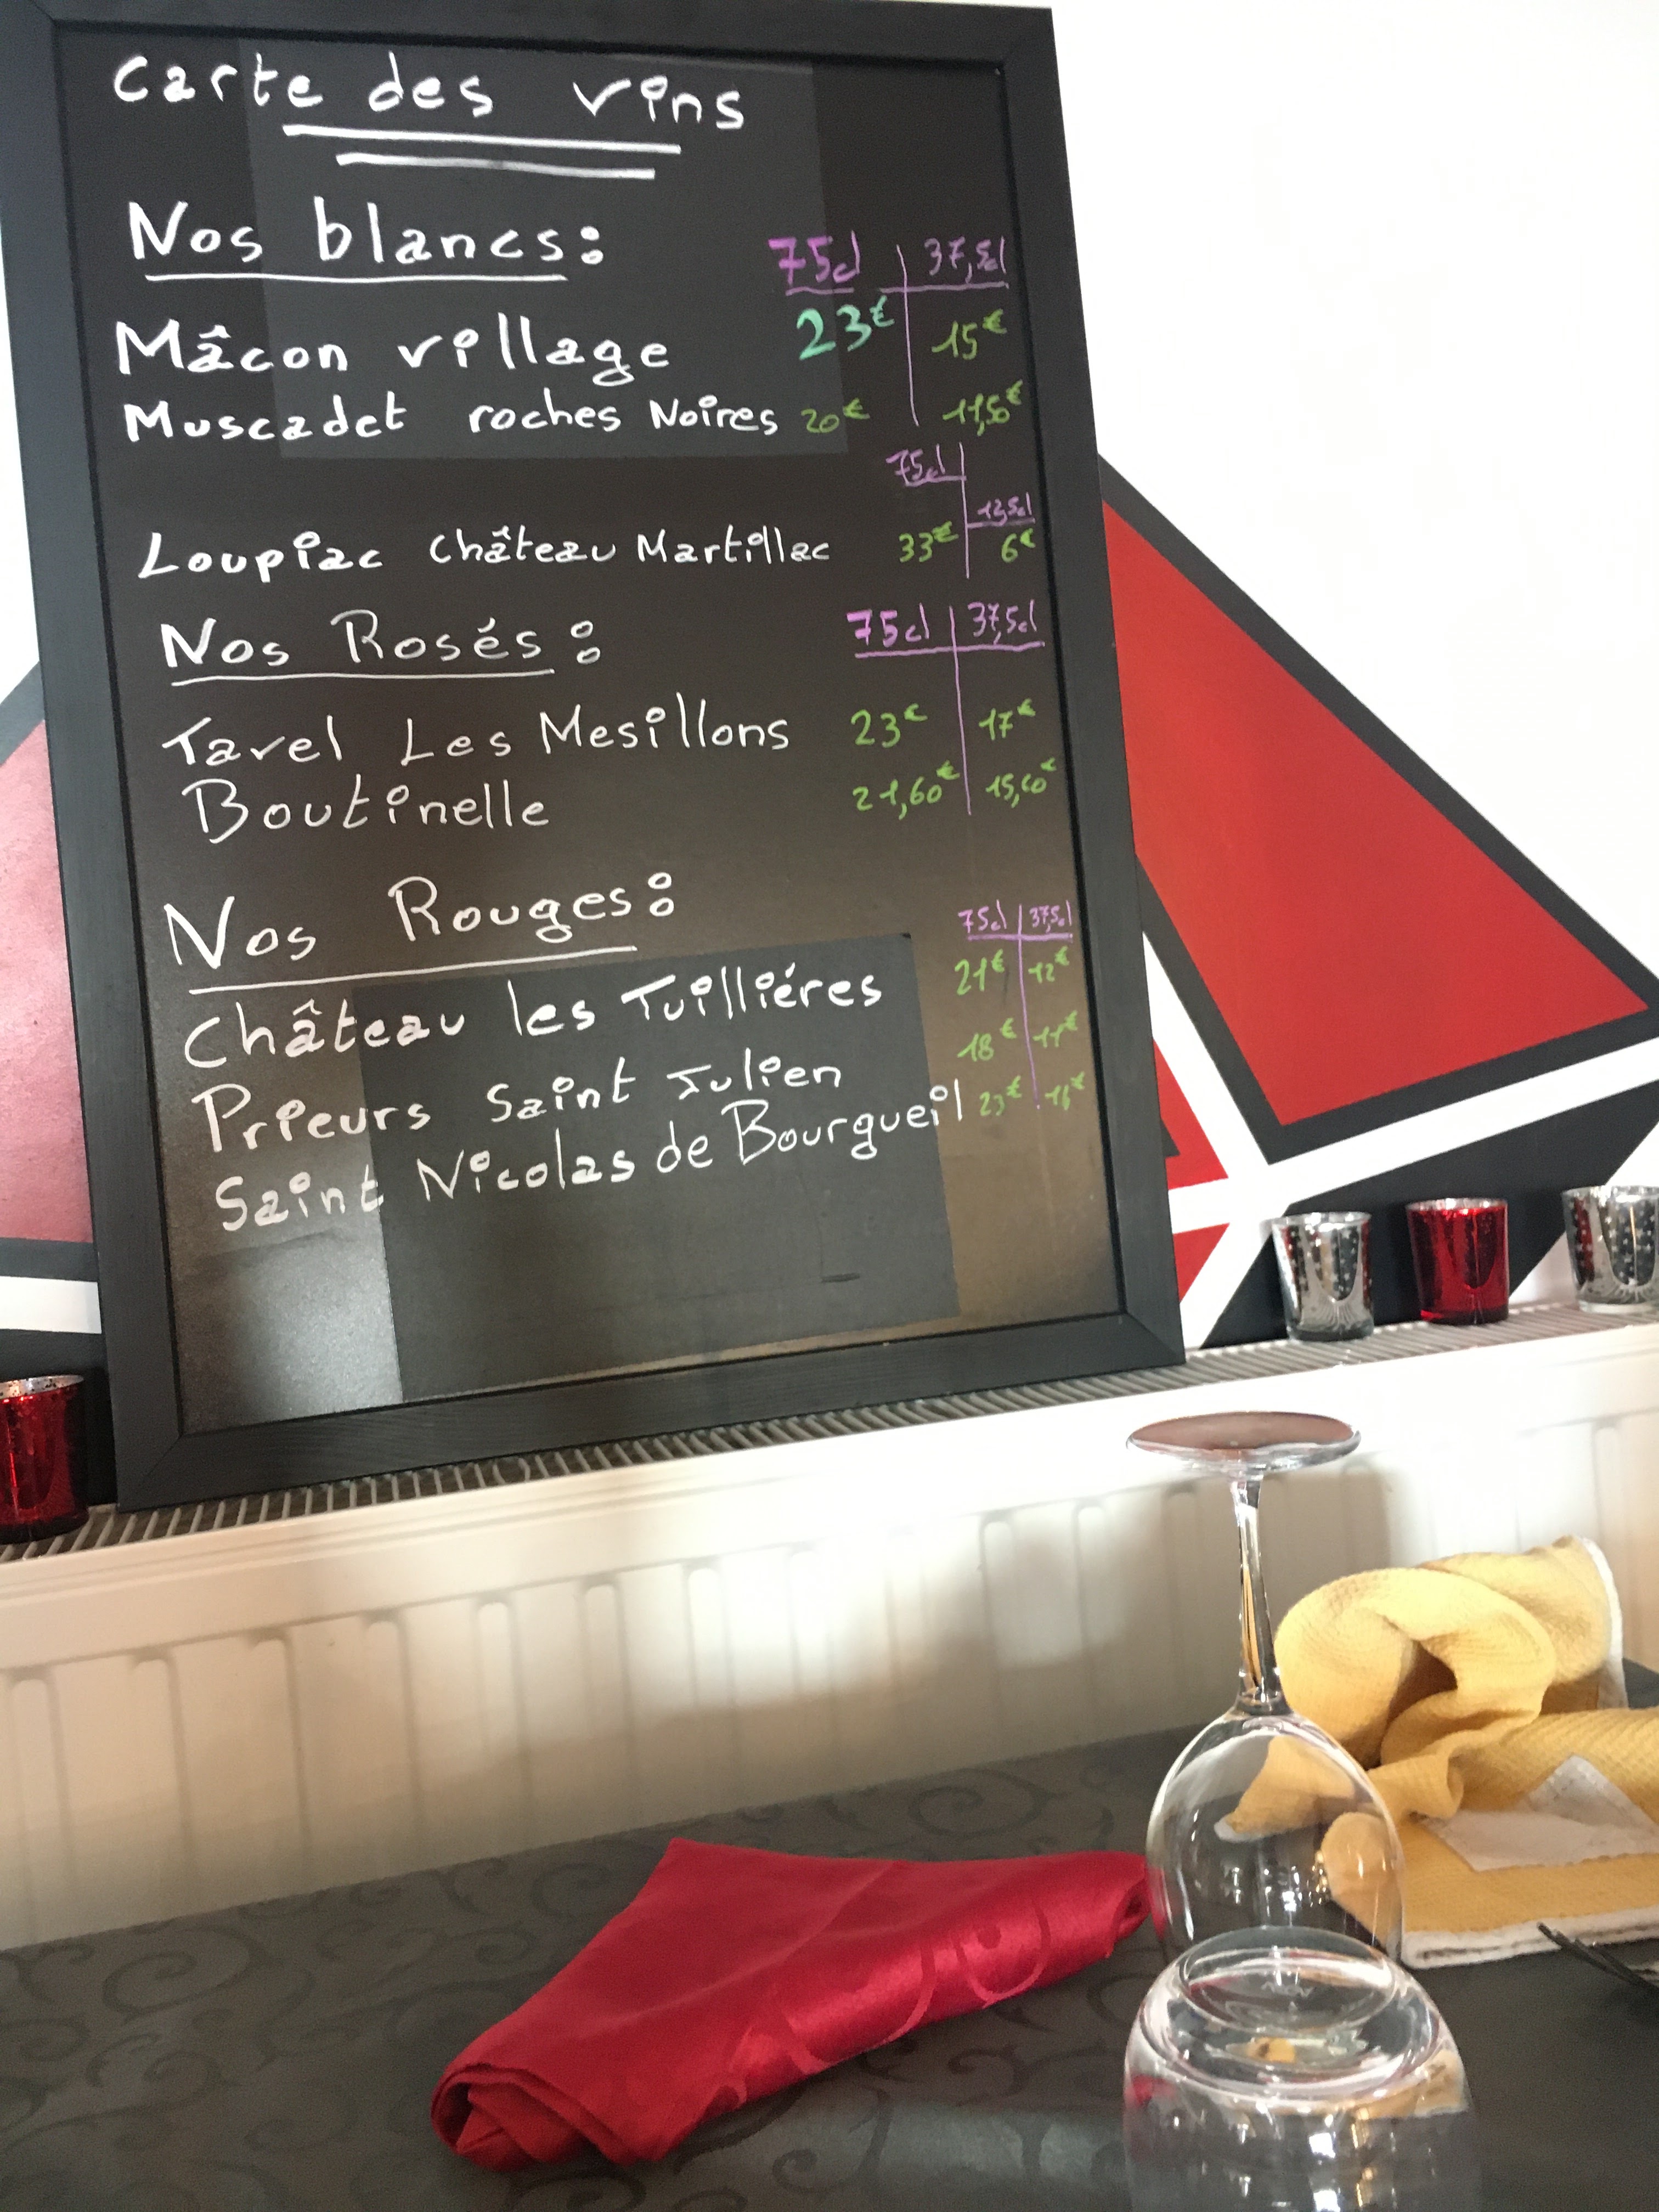 Carte des vins
Nos blancs:
75cl 37,5cl
Mâcon village 23€ 15€
Muscadet roches Noires 20€ 11,50€
75cl
12,5cl
Loupiac Château Martillac 33€ 6€
Nos Rosés:
75cl 37,5cl
Tavel Les Mesillons 23€ 17€
Boutinelle 21,60€ 15,60€
Nos Rouges:
75cl 37,5cl
Château les Tuilliéres 21€ 12€
Prieurs Saint Julien 18€ 11€
Saint Nicolas de Bourgueil 23€